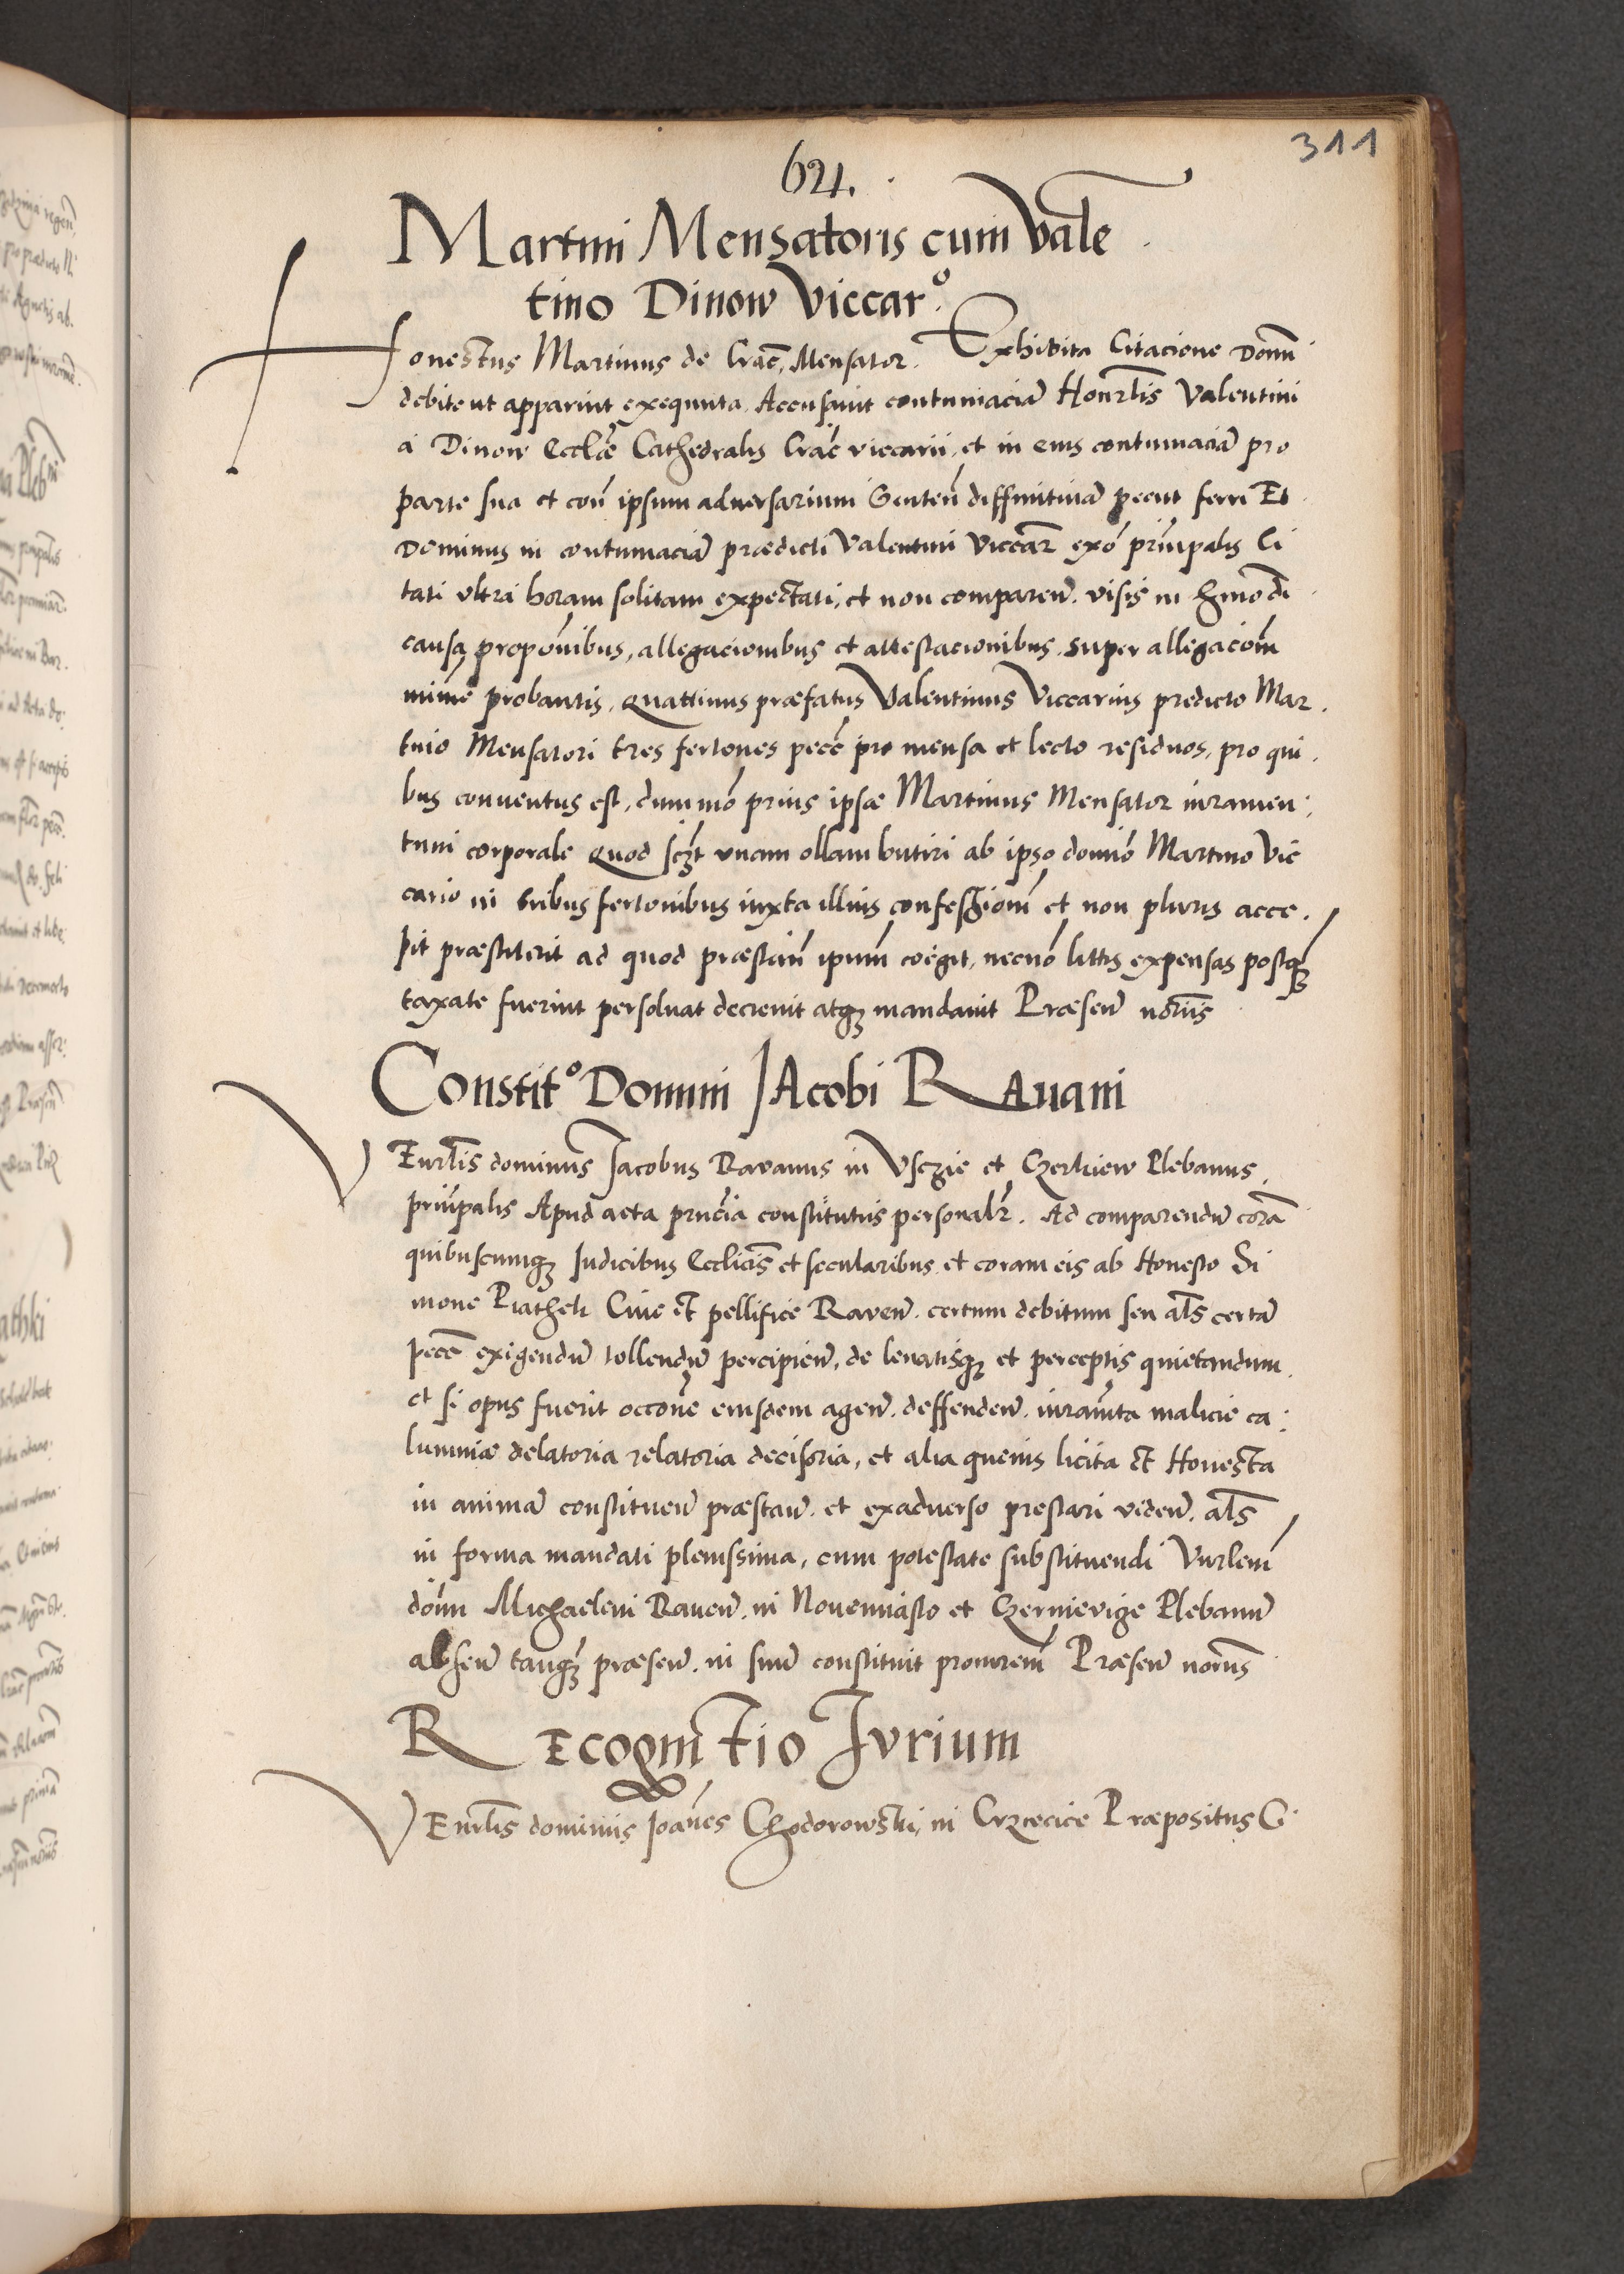 311
621.
Martini Mensatoris cum Vale
tino Dinow Viccar.º
Honestus Martinus de Crac̃. Mensator. Exhibita Citacione Domni
debite ut apparuit exequuta, Accusavit contumaciã Honrlis Valentini
à Dinow Eccl̃æ Cathedralis Crac̃ viccarii, et in eius contumaciã pro
parte sua et coñ ipsum adversarium Snteñ diffinitivã peciit ferri Et
Dominus in contumaciã prædicti Valentini Viccar̃ exõ prĩncipalis Ci
tati ultrà horam solitam expectati, et non compareñ. visis in hmõdi
causa propõnibus, allegacionibus et attestacionibus super allegacõm
mime probantis, quattinus præfatus Valentinus Viccarius predicto Mar
tinio Mensatori tres fertones pecc̃ pro mensa et lecto residuos, pro qui
bus conventus est, dummõ prius ipsæ Martinus Mensator iuramen
tum corporale quod sczt unam ollam butiri ab ipso domiõ Martino Vic
cario in tribus fertonibus iuxta illius confessionm̃ et non pluris acce
pit præstiterit ad quod præstañ ipum̃ coëgit, necnõ littis expensas postqȝ
taxate fuerint persolvat decrevit atqȝ mandavit Præsen̄ noriis
Constitº Domini Jacobi Ravani
VEnrlis dominus Jacobus Ravanus in Usczie et Czerkiew Plebanus
prin̄palis Apud acta prñcia constitutus personalr̃. Ad comparendũ corã
quibuscumqȝ Iudicibus Ecclicis̃ et secularibus et coram eis ab Honesto Si
mone Piathek Cive et pellifice Raveñ. certum debitum seu als certã
pecc̃ exigendũ tollendũ percipieñ, de levatisqȝ et perceptis quietandum
et si opus fuerit occone eiusdem ageñ. deffendeñ. iuramta malicie ca
lumniæ delatoria relatoria decisoria, et alia quevis licita et Honesta
in animã constitueñ præstañ. et exadverso prestari videñ. als
in forma mandati plenissima, cum potestate substituendi Vnrlem̃
dõnm Michaelem Raveñ. in Novemiasto et Czernievige Plebanũ
abseñ tanqȝ præseñ. in suũ constituit procurem̃ Præseñ norius
Recognitio Jurium
VEnrlis dominus Joañes Chodorowski, in Crzcecice Præpositus C